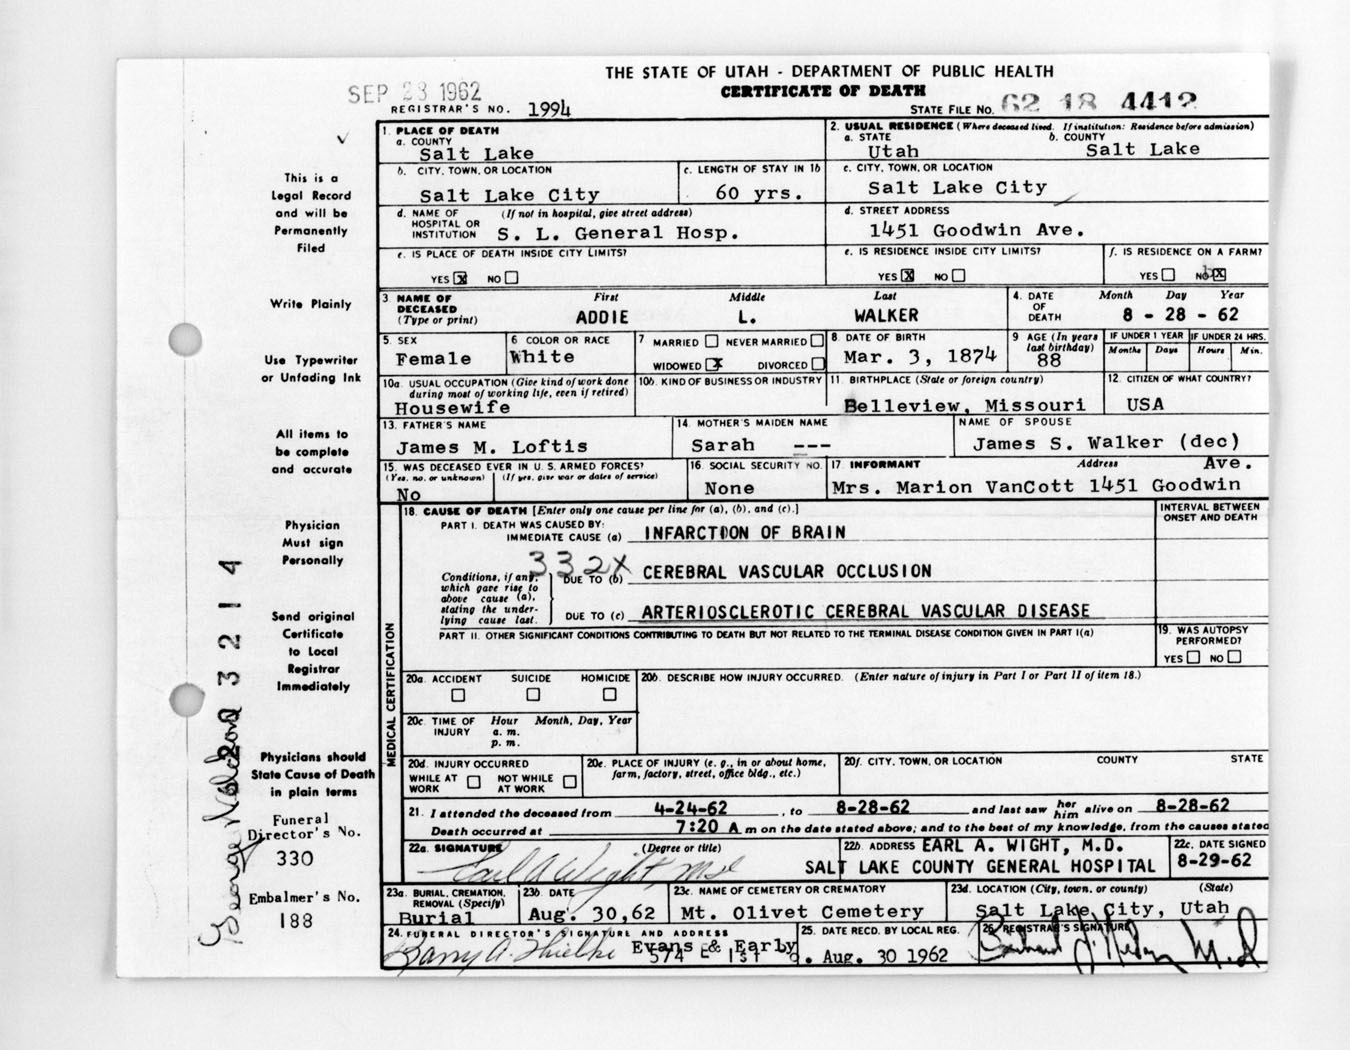 THE STATE OF UTAH - DEPARTMENT OF PUBLIC HEALTH
CERTIFICATE OF DEATH
SEP 23 1962
REGISTRAR'S NO. 1994
STATE FILE NO. 62 18 4412
This is a
Legal Record
and will be
Permanently
Filed
Write Plainly
Use Typewriter
or Unfading Ink
All items to
be complete
and accurate
Physician
Must sign
Personally
Send original
Certificate
to Local
Registrar
Immediately
Physicians should
State Cause of Death
in plain terms
Funeral
Director's No.
330
Embalmer's No.
188
George
3214
1. PLACE OF DEATH
a. COUNTY
Salt Lake
2. USUAL RESIDENCE (Where deceased lived. If institution: Residence before admission)
a. STATE b. COUNTY
Utah Salt Lake
b. CITY, TOWN, OR LOCATION
Salt Lake City
c. LENGTH OF STAY IN 1b
60 yrs.
c. CITY, TOWN, OR LOCATION
Salt Lake City
d. NAME OF (If not in hospital, give street address)
HOSPITAL OR
INSTITUTION S. L. General Hosp.
d. STREET ADDRESS
1451 Goodwin Ave.
e. IS PLACE OF DEATH INSIDE CITY LIMITS?
YES X NO
e. IS RESIDENCE INSIDE CITY LIMITS?
YES X NO
f. IS RESIDENCE ON A FARM?
YES NO X
3. NAME OF First Middle Last
DECEASED
(Type or print) ADDIE L. WALKER
4. DATE Month Day Year
OF
DEATH 8 - 28 - 62
5. SEX
Female
6 COLOR OR RACE
White
7 MARRIED NEVER MARRIED
WIDOWED X DIVORCED
8. DATE OF BIRTH
Mar. 3, 1874
9 AGE (In years
last birthday)
88
IF UNDER 1 YEAR IF UNDER 24 HRS.
Months Days Hours Min.
10a. USUAL OCCUPATION (Give kind of work done
during most of working life, even if retired)
Housewife
10b. KIND OF BUSINESS OR INDUSTRY
11. BIRTHPLACE (State or foreign country)
Belleview, Missouri
12. CITIZEN OF WHAT COUNTRY?
USA
13. FATHER'S NAME
James M. Loftis
14. MOTHER'S MAIDEN NAME
Sarah ---
NAME OF SPOUSE
James S. Walker (dec)
15. WAS DECEASED EVER IN U. S. ARMED FORCES?
(Yes, no, or unknown) (If yes, give war or dates of service)
No
16. SOCIAL SECURITY NO.
None
17. INFORMANT Address Ave.
Mrs. Marion VanCott 1451 Goodwin
MEDICAL CERTIFICATION
18. CAUSE OF DEATH [Enter only one cause per line for (a), (b), and (c).]
INTERVAL BETWEEN
ONSET AND DEATH
PART I. DEATH WAS CAUSED BY:
IMMEDIATE CAUSE (a) INFARCTION OF BRAIN
332X
Conditions, if any,
which gave rise to
above cause (a),
stating the under-
lying cause last.
DUE TO (b) CEREBRAL VASCULAR OCCLUSION
DUE TO (c) ARTERIOSCLEROTIC CEREBRAL VASCULAR DISEASE
PART II. OTHER SIGNIFICANT CONDITIONS CONTRIBUTING TO DEATH BUT NOT RELATED TO THE TERMINAL DISEASE CONDITION GIVEN IN PART I(a)
19. WAS AUTOPSY
PERFORMED?
YES NO
20a. ACCIDENT SUICIDE HOMICIDE
20b. DESCRIBE HOW INJURY OCCURRED. (Enter nature of injury in Part I or Part II of item 18.)
20c. TIME OF Hour Month, Day, Year
INJURY a. m.
p. m.
20d. INJURY OCCURRED
WHILE AT NOT WHILE
WORK AT WORK
20e. PLACE OF INJURY (e. g., in or about home,
farm, factory, street, office bldg., etc.)
20f. CITY, TOWN, OR LOCATION COUNTY STATE
21. I attended the deceased from 4-24-62, to 8-28-62 and last saw her him alive on 8-28-62
Death occurred at 7:20 A m on the date stated above; and to the best of my knowledge, from the causes stated
22a. SIGNATURE (Degree or title)
Earl A Wight, MD
22b. ADDRESS EARL A. WIGHT, M.D.
SALT LAKE COUNTY GENERAL HOSPITAL
22c. DATE SIGNED
8-29-62
23a. BURIAL, CREMATION,
REMOVAL (Specify)
Burial
23b. DATE
Aug. 30,62
23c. NAME OF CEMETERY OR CREMATORY
Mt. Olivet Cemetery
23d. LOCATION (City, town, or county) (State)
Salt Lake City, Utah
24. FUNERAL DIRECTOR'S SIGNATURE AND ADDRESS
Evans & Early
574 E 1st
25. DATE RECD. BY LOCAL REG.
Aug. 30 1962
26. REGISTRAR'S SIGNATURE